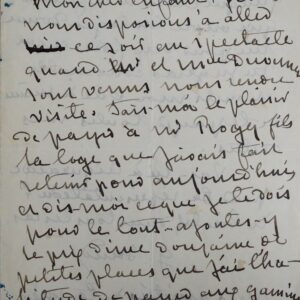 Mon cher enfant,
nous disposions à aller
ce soir au spectacle
quand Mr et Mme
sont venus nous rendre
visite. Fais-moi le plaisir
de payer à Mr Roger fils
la loge que j'avais fait
retenir pour aujourd'hui
et dis-moi ce que je te dois
pour le tout - ajoutes-y
le prix d'une douzaine de
petites places que j'ai l'ha-
bitude de payer aux gamins